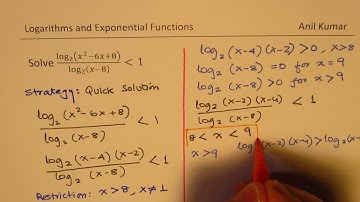 Logarithms and Exponential Functions
Anil Kumar
Solve log₂(x²−6x+8)/log₂(x−8) < 1
Strategy: Quick Solution
log₂(x²−6x+8)/log₂(x−8) < 1
log₂(x−4)(x−2)/log₂(x−8) < 1
Restriction: x>8, x≠1
log₂(x−4)(x−2) >0, x>8
log₂(x−8) =0 for x=9
log₂(x−8) >0 for x>9
log₂(x−2)(x−4)/log₂(x−8) < 1
8 < x < 9
x>9 (x−2)(x−4)>log₂(x−